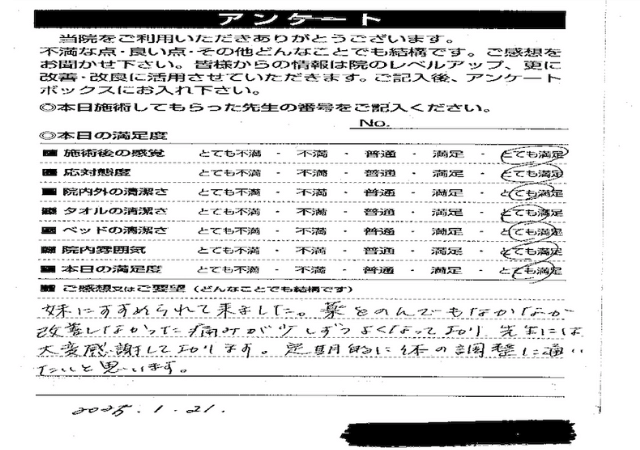 アンケート
当院をご利用いただきありがとうございます。
不満な点・良い点・その他どんなことでも結構です。ご感想を
お聞かせ下さい。皆様からの情報は院のレベルアップ、更に
改善・改良に活用させていただきます。ご記入後、アンケート
ボックスにお入れ下さい。
◎本日施術してもらった先生の番号をご記入ください。
No.
◎本日の満足度
施術後の感覚 とても不満 ・ 不満 ・ 普通 ・ 満足 ・ とても満足
応対態度 とても不満 ・ 不満 ・ 普通 ・ 満足 ・ とても満足
院内外の清潔さ とても不満 ・ 不満 ・ 普通 ・ 満足 ・ とても満足
タオルの清潔さ とても不満 ・ 不満 ・ 普通 ・ 満足 ・ とても満足
ベッドの清潔さ とても不満 ・ 不満 ・ 普通 ・ 満足 ・ とても満足
院内雰囲気 とても不満 ・ 不満 ・ 普通 ・ 満足 ・ とても満足
本日の満足度 とても不満 ・ 不満 ・ 普通 ・ 満足 ・ とても満足
ご感想又はご要望（どんなことでも結構です）
妹にすすめられて来ました。薬をのんでもなかなか
改善しなかった痛みが少しずつよくなっており、先生には
大変感謝しております。定期的に体の調整に通い
たいと思います。
2025.1.21.